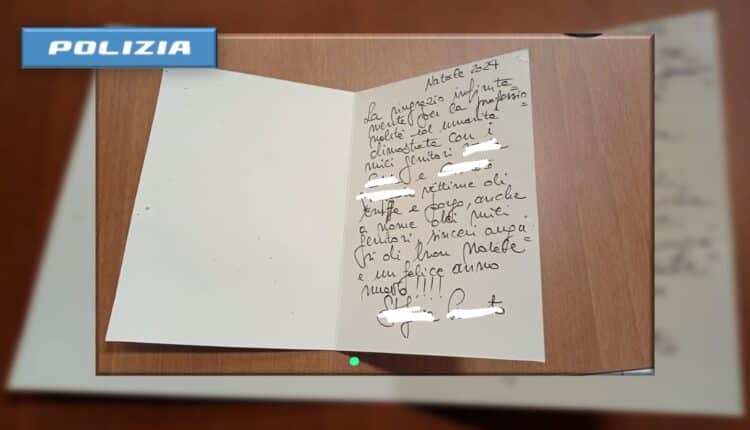 POLIZIA
Natale 2024
La ringrazio infinita=
mente per la professio=
nalità ed umanità
dimostrata con i
miei genitori
e
vittime di
truffe e porgo, anche
a nome dei miei
genitori, sinceri augu
ri di buon Natale
e un felice anno
nuovo!!!!